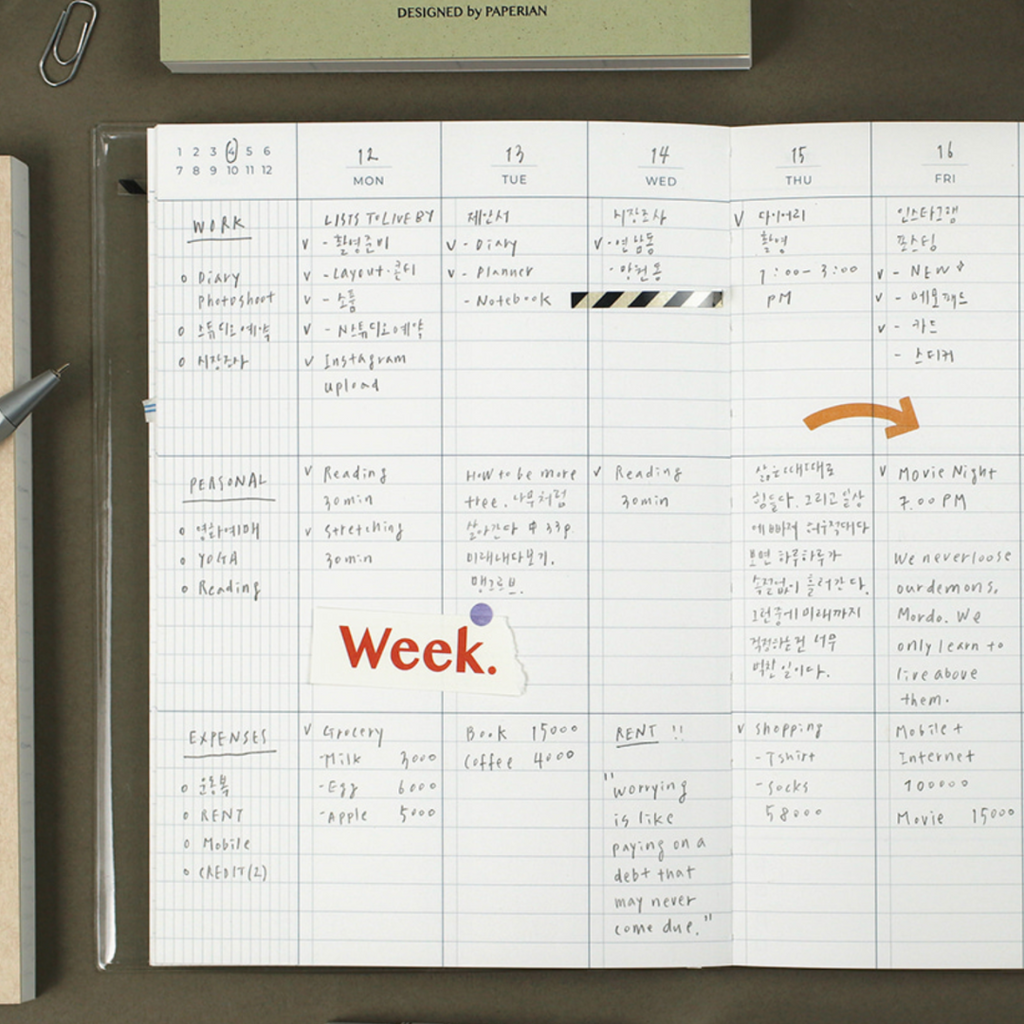 DESIGNED by PAPERIAN
1 2 3 4 5 6
7 8 9 10 11 12
12
MON
13
TUE
14
WED
15
THU
16
FRI
WORK
o Diary
Photoshoot
o 스튜디오예약
o 시장조사
LISTS TO LIVE BY
v - 촬영준비
v - Layout·콘티
v - 소품
v - 스튜디오예약
v Instagram
upload
제안서
v - Diary
v - Planner
- Notebook
시장조사
v - 연남동
- 망원동
v 다이어리
촬영
1:00-3:00
PM
인스타그램
포스팅
v - NEW
v - 메모패드
v - 카드
- 스티커
PERSONAL
o 영화예매
o YOGA
o Reading
v Reading
30min
v stretching
30min
How to be more
tree. 나무처럼
살아간다 33p.
미래내다보기.
맹그로브.
v Reading
30min
삶은 때때로
힘들다. 그리고 일상
에 빠져 허우적대다
보면 하루하루가
속절없이 흘러간다.
그런중에 미래까지
걱정하는건 너무
벅찬 일이다.
v Movie Night
7:00 PM
We never loose
our demons,
Mordo. We
only learn to
live above
them.
Week.
EXPENSES
o 운동복
o RENT
o Mobile
o CREDIT(2)
v Grocery
-Milk 3000
-Egg 6000
-Apple 5000
Book 15000
Coffee 4000
RENT !!
"worrying
is like
paying on a
debt that
may never
come due."
v shopping
- Tshirt
- socks
58000
Mobile +
Internet
100000
Movie 15000